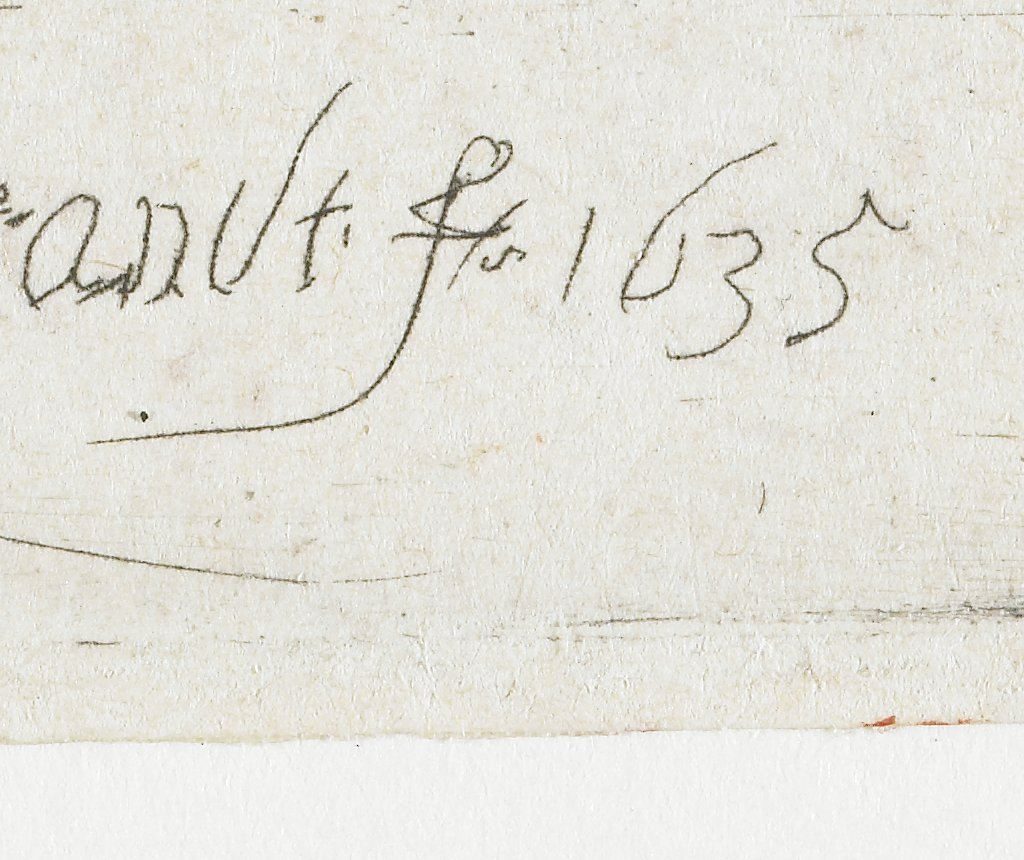 andt. f. 1635